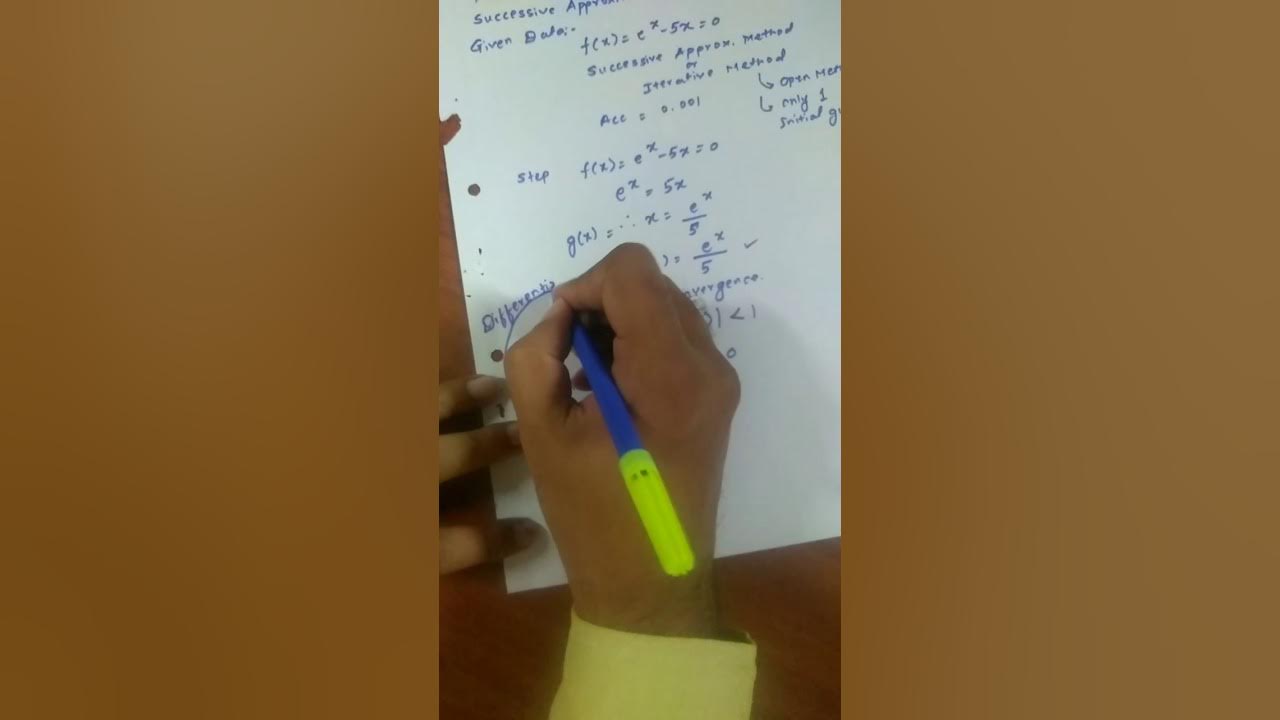 Successive Approx.
Given Data:-
f(x) = e^x - 5x = 0
Successive Approx. Method
or
Iterative Method
↳ Open Met
Acc = 0.001
↳ only 1
Initial gu
Step f(x) = e^x - 5x = 0
e^x = 5x
g(x) = ∴ x = e^x/5
) = e^x/5 ✓
Differentia
nvergence.
)| < 1
0